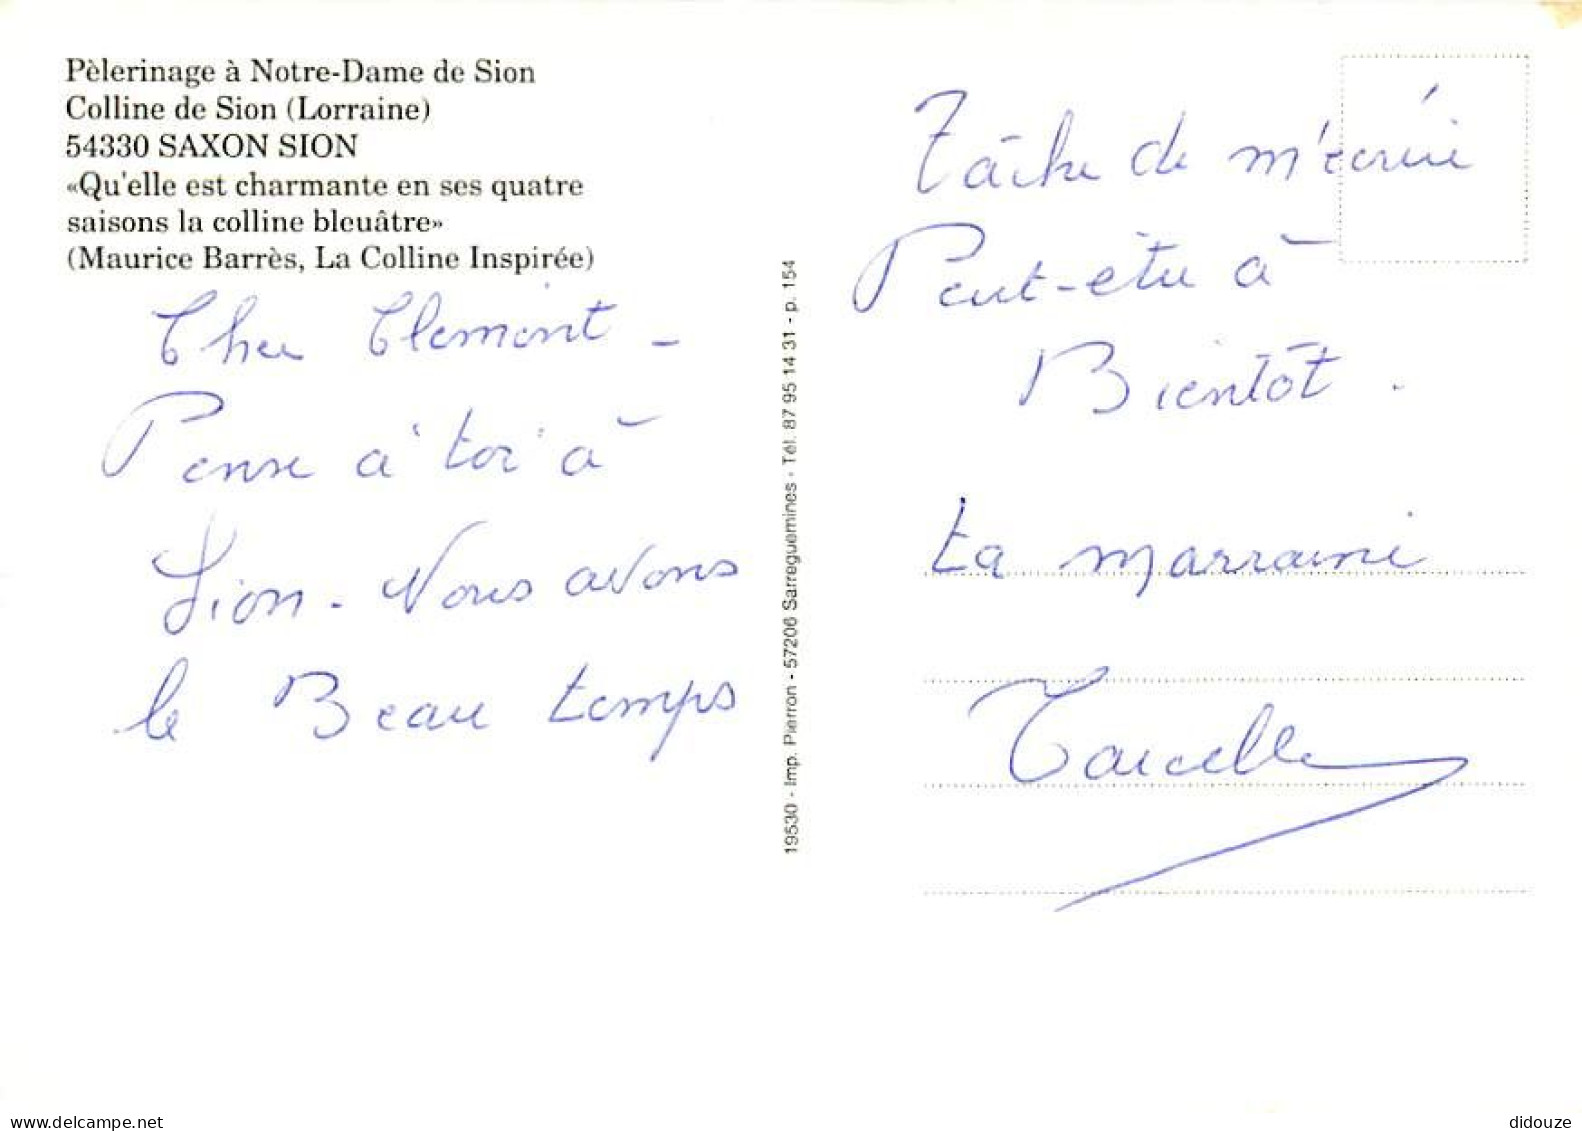 Pèlerinage à Notre-Dame de Sion
Colline de Sion (Lorraine)
54330 SAXON SION
«Qu'elle est charmante en ses quatre
saisons la colline bleuâtre»
(Maurice Barrès, La Colline Inspirée)
Cher Clement -
Pense à toi à
Sion. Nous avons
le Beau temps
19530 - Imp. Pierron - 57206 Sarreguemines - Tél. 87 95 14 31 - p. 154
Tâche de m'écrire
Peut-être à
Bientôt.
ta marraine
didouze